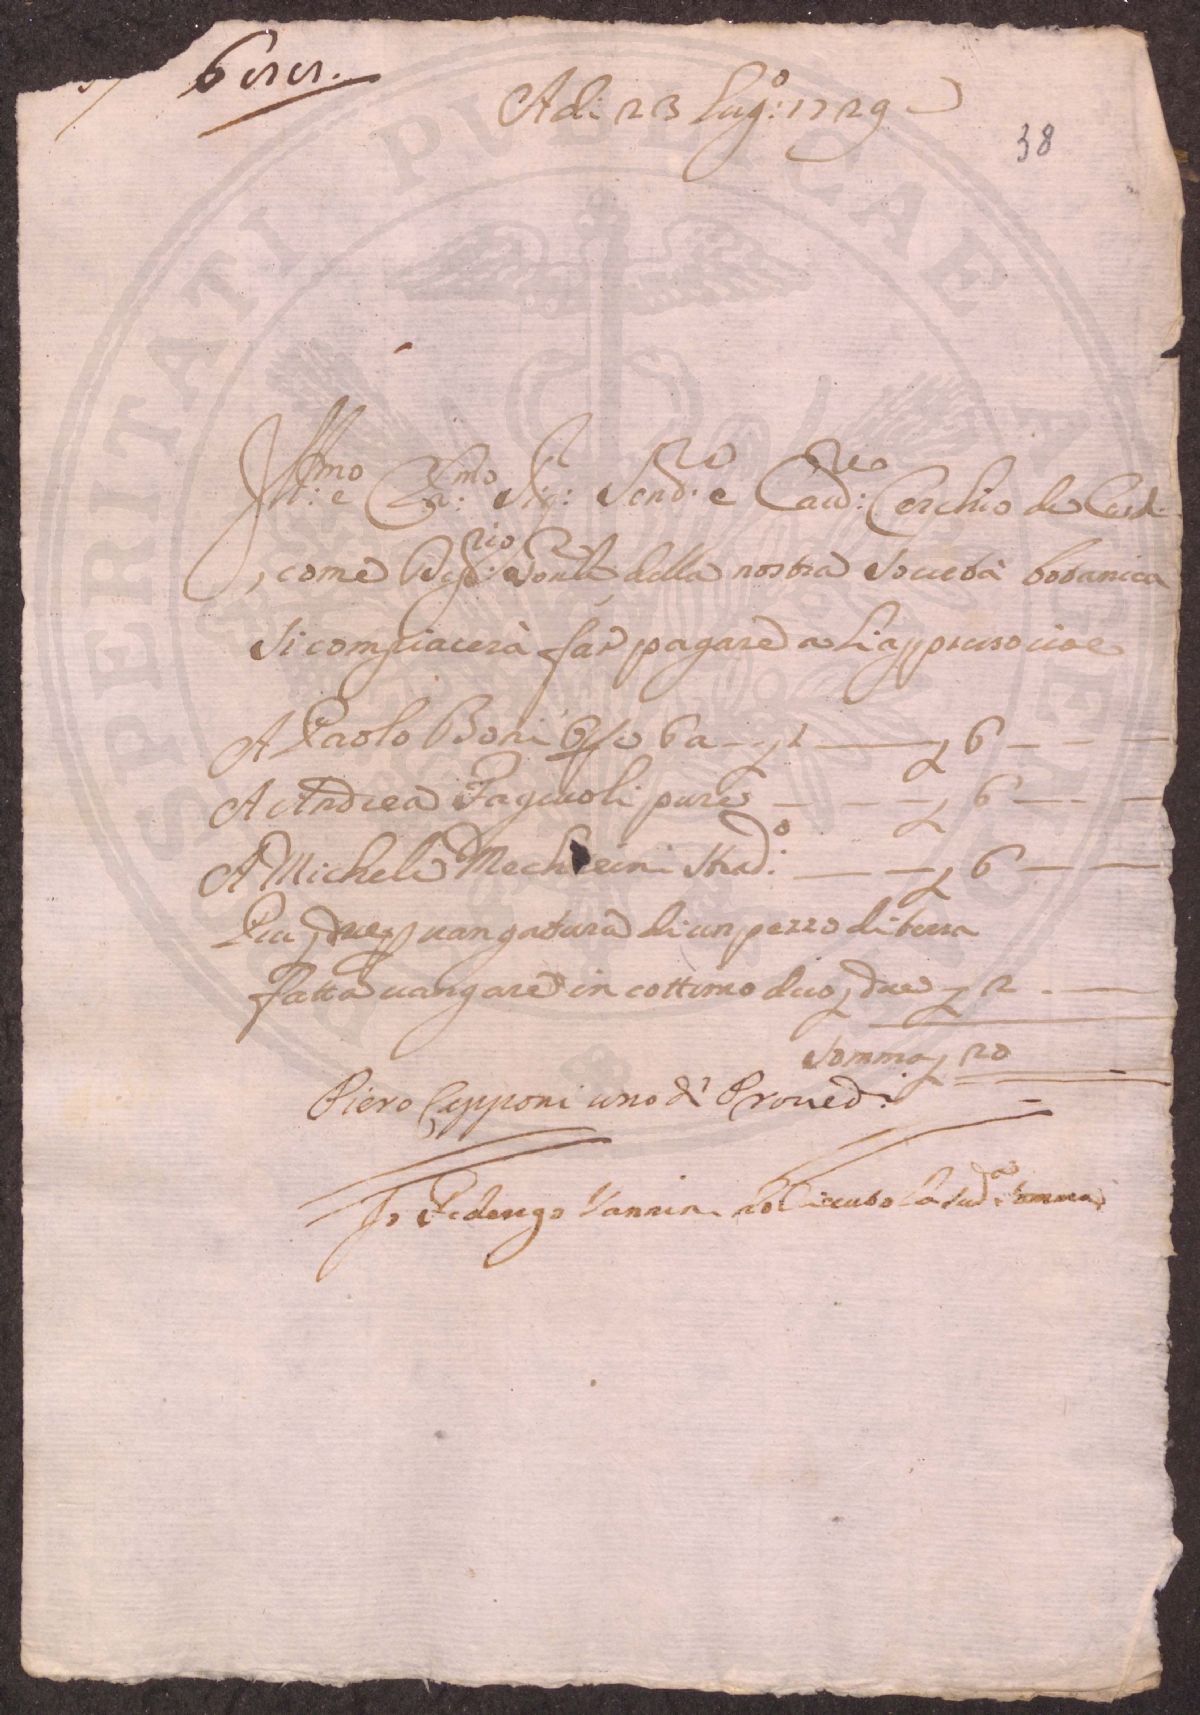 Adi 23 Lug:o 1729
38
Ill:mo e Cla:mo Sig:r Send:re e Cav:re Cerchio de Cerchi
come Seg:rio della nostra Società botanica
si compiacerà far pagare a li appresso cioe
A Paolo Boni 6 6
A Andrea Fagiuoli pure 6
A Michele Mecherini Strad:o 6
Piu due vangatura di un pezzo di terra
fatta vangare in cottimo due 2
Somma 20
Piero Capponi uno d' Proved:i
Io Federigo Vannini ho riceuto la Sud:a Somma
PROSPERITATI PUBLICAE AUGENDAE